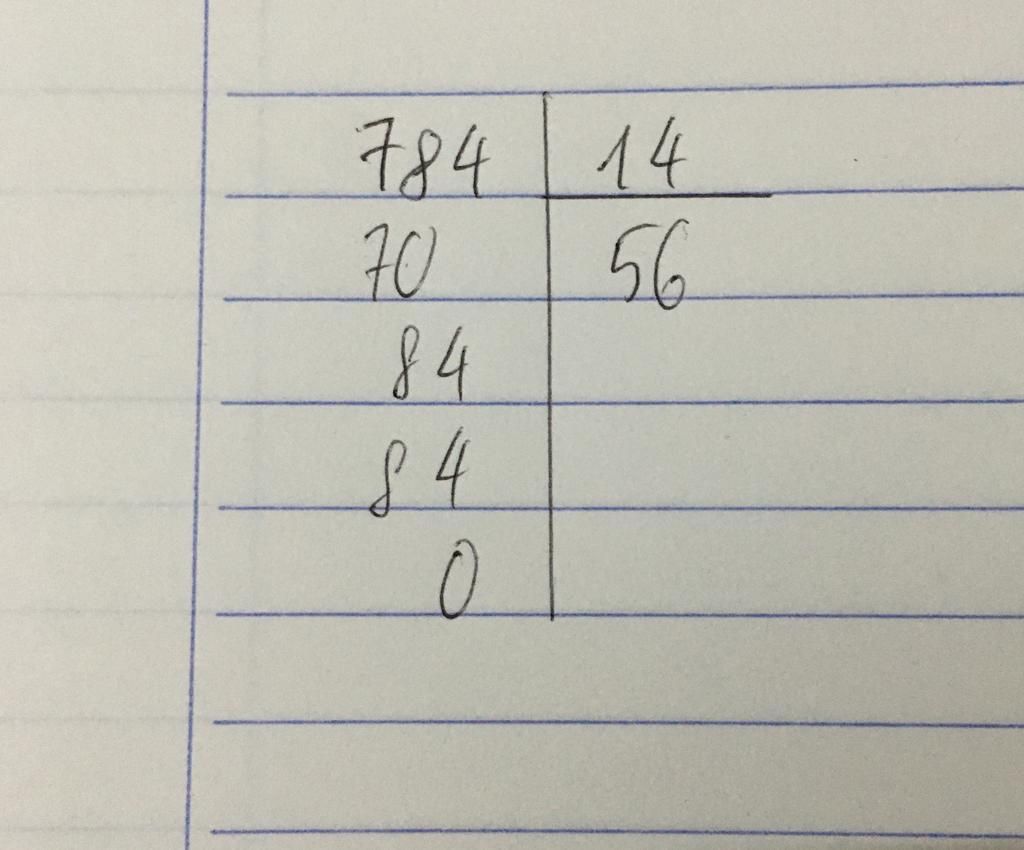 784 14
70 56
84
84
0